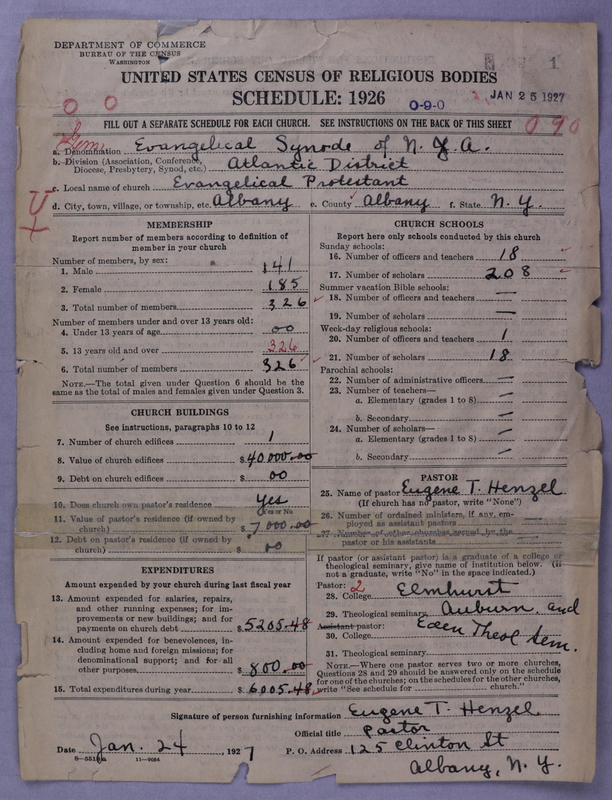 DEPARTMENT OF COMMERCE
BUREAU OF THE CENSUS
WASHINGTON
1
UNITED STATES CENSUS OF RELIGIOUS BODIES
SCHEDULE: 1926
0-9-0
JAN 25 1927
0 0
FILL OUT A SEPARATE SCHEDULE FOR EACH CHURCH. SEE INSTRUCTIONS ON THE BACK OF THIS SHEET
0 9 0
a. Denomination Evangelical Synode of N. A.
b. Division (Association, Conference, Diocese, Presbytery, Synod, etc.) Atlantic District
c. Local name of church Evangelical Protestant
d. City, town, village, or township, etc. Albany e. County Albany f. State N. Y.
MEMBERSHIP
Report number of members according to definition of
member in your church
Number of members, by sex:
1. Male 141
2. Female 185
3. Total number of members 326
Number of members under and over 13 years old:
4. Under 13 years of age 00
5. 13 years old and over 326
6. Total number of members 326
NOTE.—The total given under Question 6 should be
the same as the total of males and females given under Question 3.
CHURCH BUILDINGS
See instructions, paragraphs 10 to 12
7. Number of church edifices 1
8. Value of church edifices $40000.00
9. Debt on church edifices $00
10. Does church own pastor's residence Yes
Yes or No
11. Value of pastor's residence (if owned by
church) $7000.00
12. Debt on pastor's residence (if owned by
church) $00
EXPENDITURES
Amount expended by your church during last fiscal year
13. Amount expended for salaries, repairs,
and other running expenses; for im-
provements or new buildings; and for
payments on church debt $5205.48
14. Amount expended for benevolences, in-
cluding home and foreign missions; for
denominational support; and for all
other purposes $800.00
15. Total expenditures during year $6005.48
CHURCH SCHOOLS
Report here only schools conducted by this church
Sunday schools:
16. Number of officers and teachers 18
17. Number of scholars 208
Summer vacation Bible schools:
18. Number of officers and teachers —
19. Number of scholars —
Week-day religious schools:
20. Number of officers and teachers 1
21. Number of scholars 18
Parochial schools:
22. Number of administrative officers —
23. Number of teachers—
a. Elementary (grades 1 to 8) —
b. Secondary —
24. Number of scholars—
a. Elementary (grades 1 to 8) —
b. Secondary —
PASTOR
25. Name of pastor Eugene T. Henzel
(If church has no pastor, write "None")
26. Number of ordained ministers, if any, em-
ployed as assistant pastors —
27. Number of other churches served by the
pastor or his assistants
If pastor (or assistant pastor) is a graduate of a college or
theological seminary, give name of institution below. (If
not a graduate, write "No" in the space indicated.)
Pastor: 2
28. College Elmhurst
29. Theological seminary Auburn and
Assistant pastor: Eden Theol Sem.
30. College
31. Theological seminary
NOTE.—Where one pastor serves two or more churches,
Questions 28 and 29 should be answered only on the schedule
for one of the churches; on the schedules for the other churches,
write "See schedule for church."
Signature of person furnishing information Eugene T. Henzel
Official title Pastor
Date Jan. 24, 1927 P. O. Address 125 Clinton St
Albany, N. Y.
11—9084